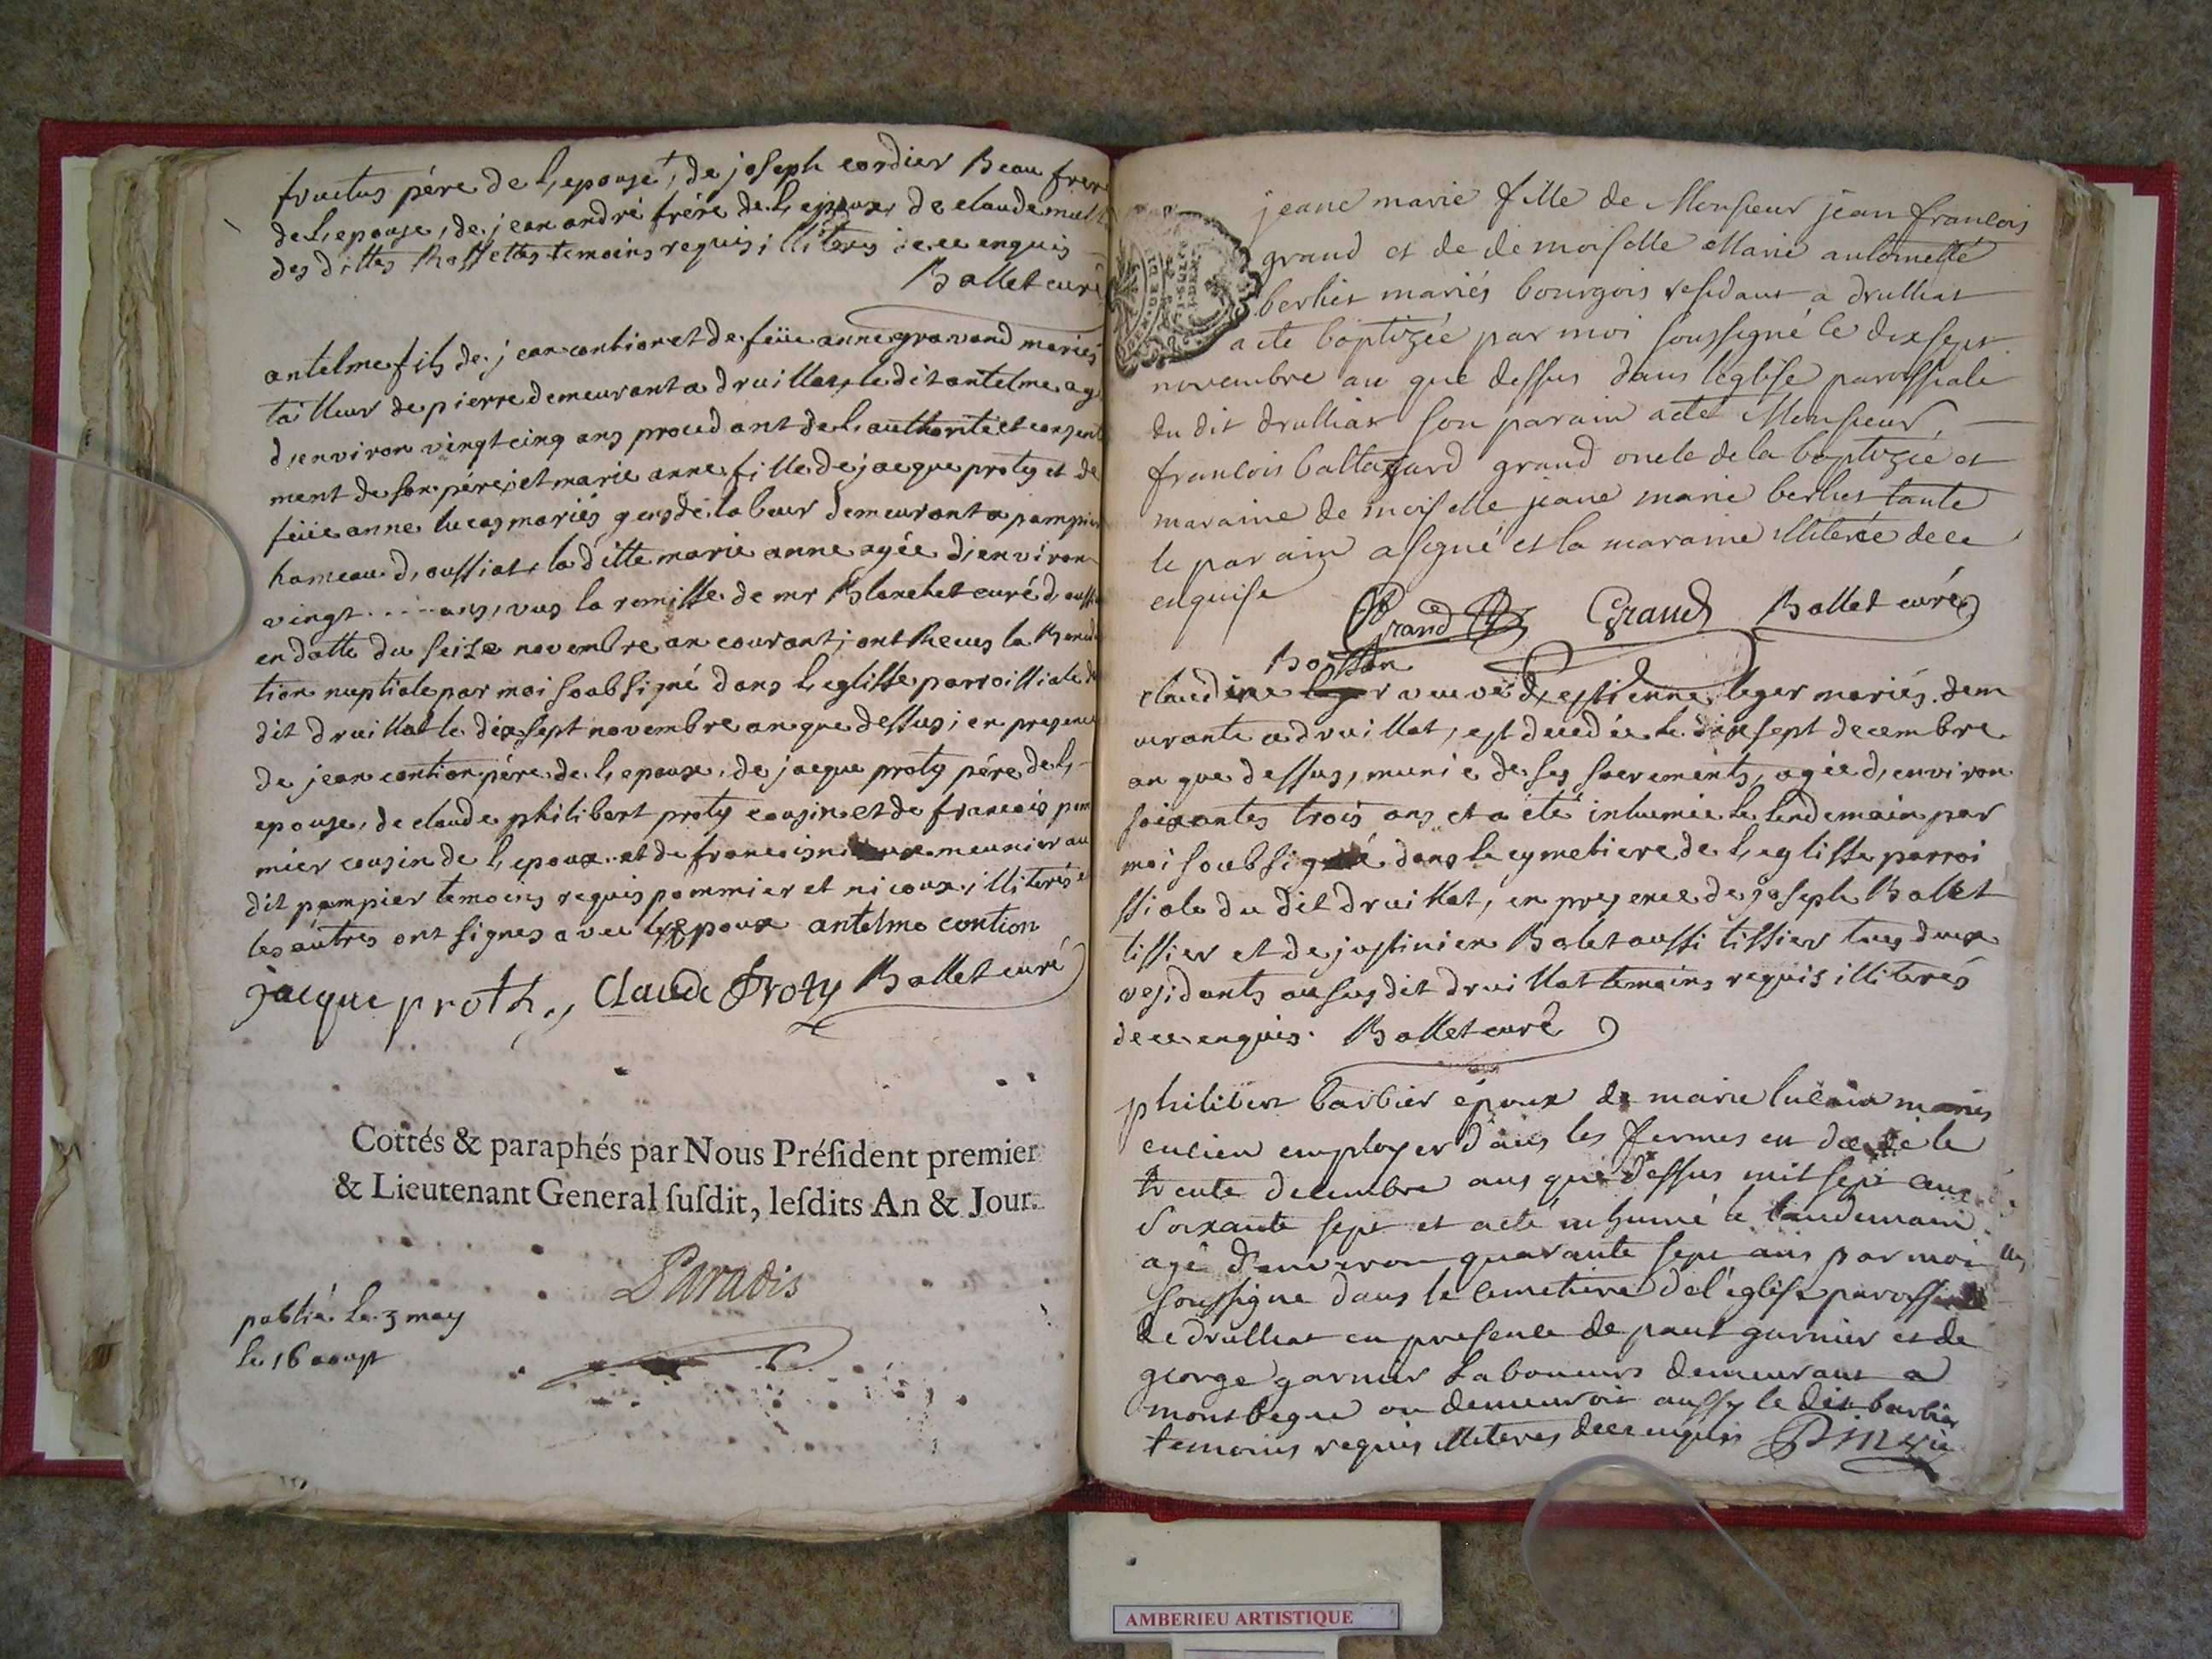 fructus père de l,epouse, de joseph cordier Beau frere
de l,epouse, de jean andré frére de l,epoux, de claude
des dittes temoins requis illiterés de ce enquis
Ballet curé
antelme fils de jean contion et de feüe anne gravand mariés
tailleur de pierre demeurant a druillat, le dit antelme agé
d,environ vingt cinq ans procedant de l,authorité et consente
ment de son père, et marie anne fille de jacque proty et de
feüe anne lucas mariés gens de labeur demeurant a pampier
hameau d,oussiat, la ditte marie anne agée d,environ
vingt .... ans, vus la remisse de mr Blanchet curé d,
en datte du seize novembre an courant; ont Recus la Benedi
tion nuptiale par moi soubsigné dans l,eglisse parroissiale du
dit druillat le dix sept novembre an que dessus, en presence
de jean contion père de l,epoux, de jacque proty père de l,
epouse, de claude philibert proty cousin et de francois pom
mier cousin de l,epoux et de francois meunier au
dit pampier temoins requis pommier et nicoux illiterés
les autres ont signes avec l'epoux antelme contion
jacque proth., Claude Proty Ballet curé
Cottés & paraphés par Nous Préſident premier
& Lieutenant General ſuſdit, leſdits An & Jour.
Paradis
publié le 3 may
le 16 aoust
jeane marie fille de Monsieur jean francois
grand et de demoiselle Marie antoinette
berliet mariés bourgois residant a drulliat
a eté baptizée par moi soussigné le dix sept
novembre an que dessus dans l'eglise paroissiale
du dit drulliat son parain a eté Monsieur
francois baltazard grand oncle de la baptizée et
maraine demoiselle jeane marie berliet tante
le parain a signé et la maraine illiterée de ce
enquise
Grand Grand Ballet curé
claudine veuve d,estienne leger mariés dem
urante a druillat, est decedée le dix sept decembre
an que dessus, munie de ses sacrements, agée d,environ
soixantes trois ans et a eté inhumée le lendemain par
moi soubsigné dans le cymetiere de l,eglisse parroi
ssiale du dit druillat, en presence de joseph Ballet
tissier et de justinien Balet aussi tissier tous deux
residants au susdit druillat temoins requis illiterés
de ce enquis. Ballet curé
philibert barbier époux de marie mariés
encien employer dans les fermes en decedé le
trente decembre ans que dessus mil sept cens
soixante sept et a eté inhumé le landemain
agé d'environ quarante sept ans par moi
soussigné dans le cemetiere de l'eglise paroissiale
de drulliat en presence de paul garnier et de
george garnier Laboueurs demeurant a
montbegue ou demeuroit aussy le dit barbier
temoins requis illiteres de ce enquis
AMBERIEU ARTISTIQUE